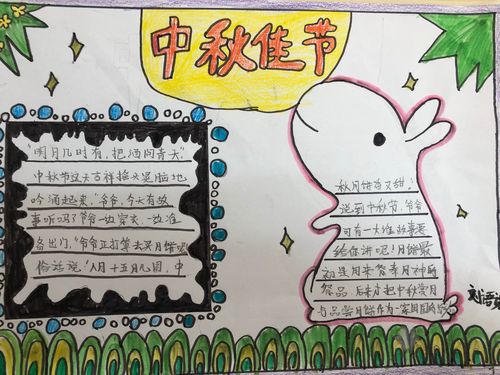 中秋佳节
"明月几时有,把酒问青天"
中秋节这天吉祥摇头晃脑地
吟诵起来,"爷爷,今天有故
事听吗?"爷爷一边穿衣,一边准
备出门,"爷爷正打算去买月饼呢
俗话说,"八月十五月儿圆,中
秋月饼香又甜,"
说到中秋节,爷爷
可有一大堆故事要
给你讲呢!月饼最
初是用来祭奉月神的
祭品,后来才把中秋赏月
与品尝月饼作为一家团圆的
刘语